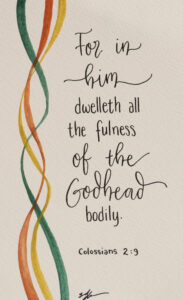 For in
him
dwelleth all
the fulness
of the
Godhead
bodily.
Colossians 2:9